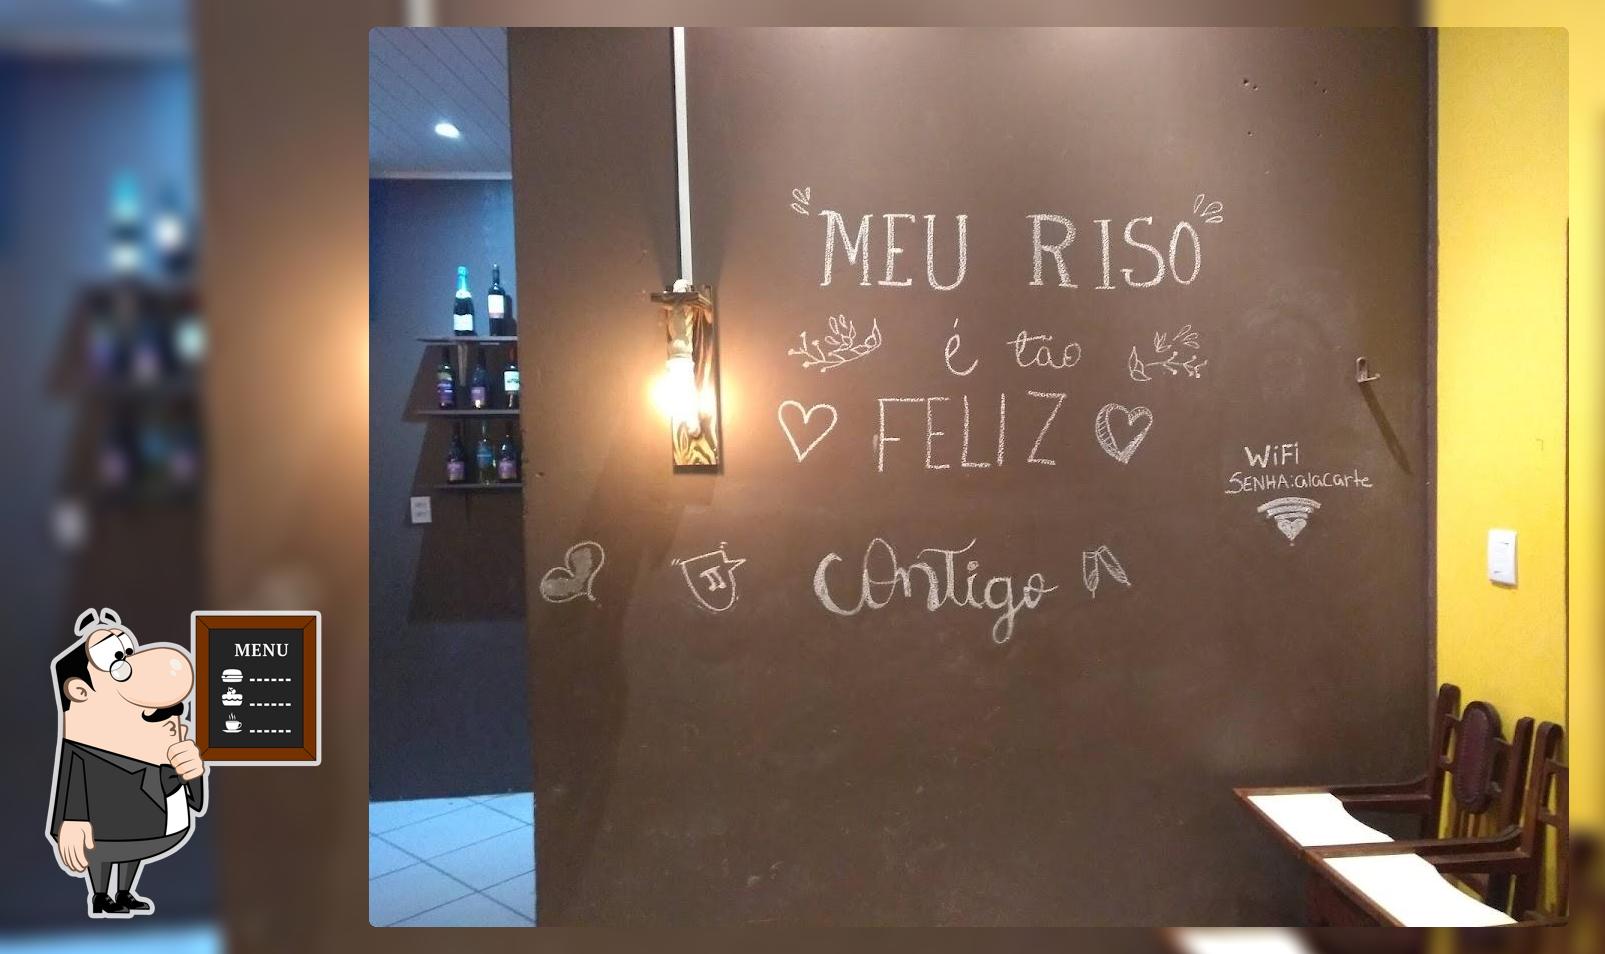 "MEU RISO"
é tão
FELIZ
contigo
WiFi
SENHA:alacarte
MENU